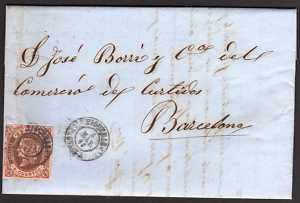 D. José Borri y Cª del
Comercio de Curtidos
Barcelona